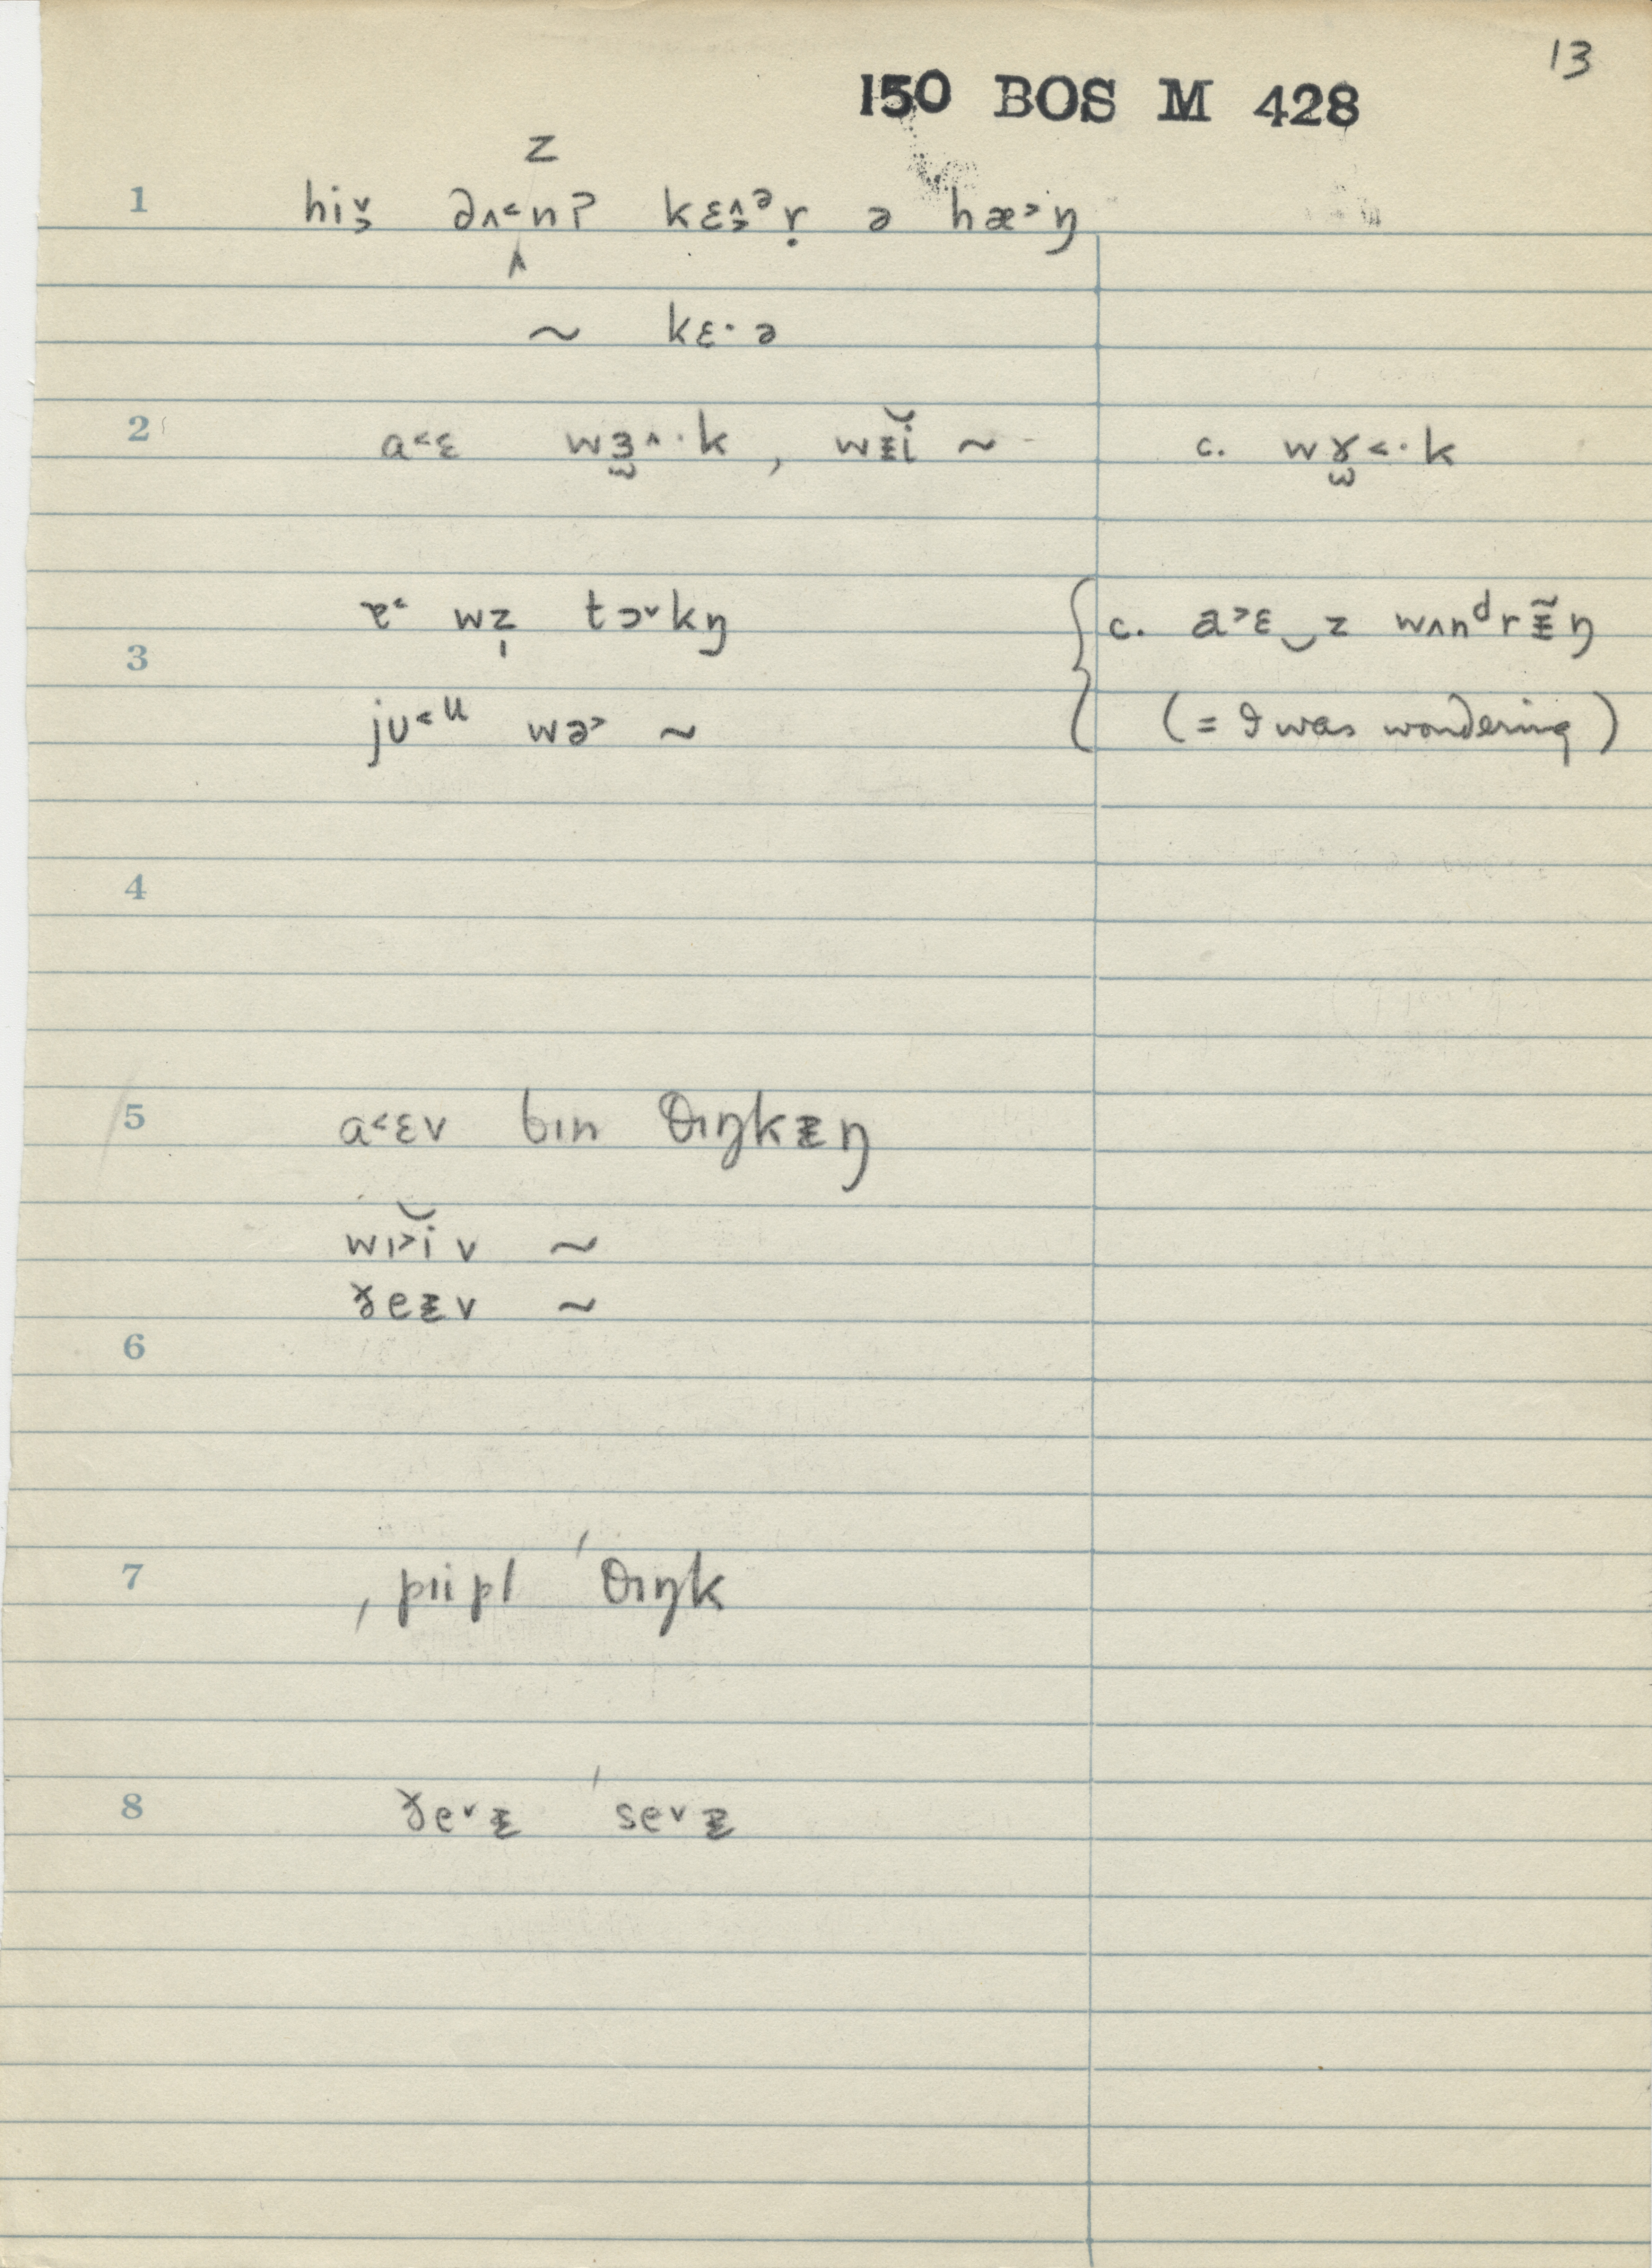 13
150 BOS M 428
z
1 hi˅s ∂ʌ˂nʔ kɛ^s ᵊṛ ə hæ˃ŋ
~ kɛ· ə
2 a˂ɛ wɜ̫^·k , wᵻi ~ c. wɤ̫˂·k
ɐ˂ wz̩ tɔ˅kŋ c. a˃ɛ‿z wʌnᵈrᵻ̃ŋ
3
jʊ˂ᵘ wə˃ ~ (= I was wondering)
4
5 a˂ɛv bɪn θɪŋkᵻŋ
wɪ˃i v ~
ɤeᵻv ~
6
7 ˌpɪipl ˈθɪŋk
8 ɤe˅ᵻ ˈse˅ᵻ